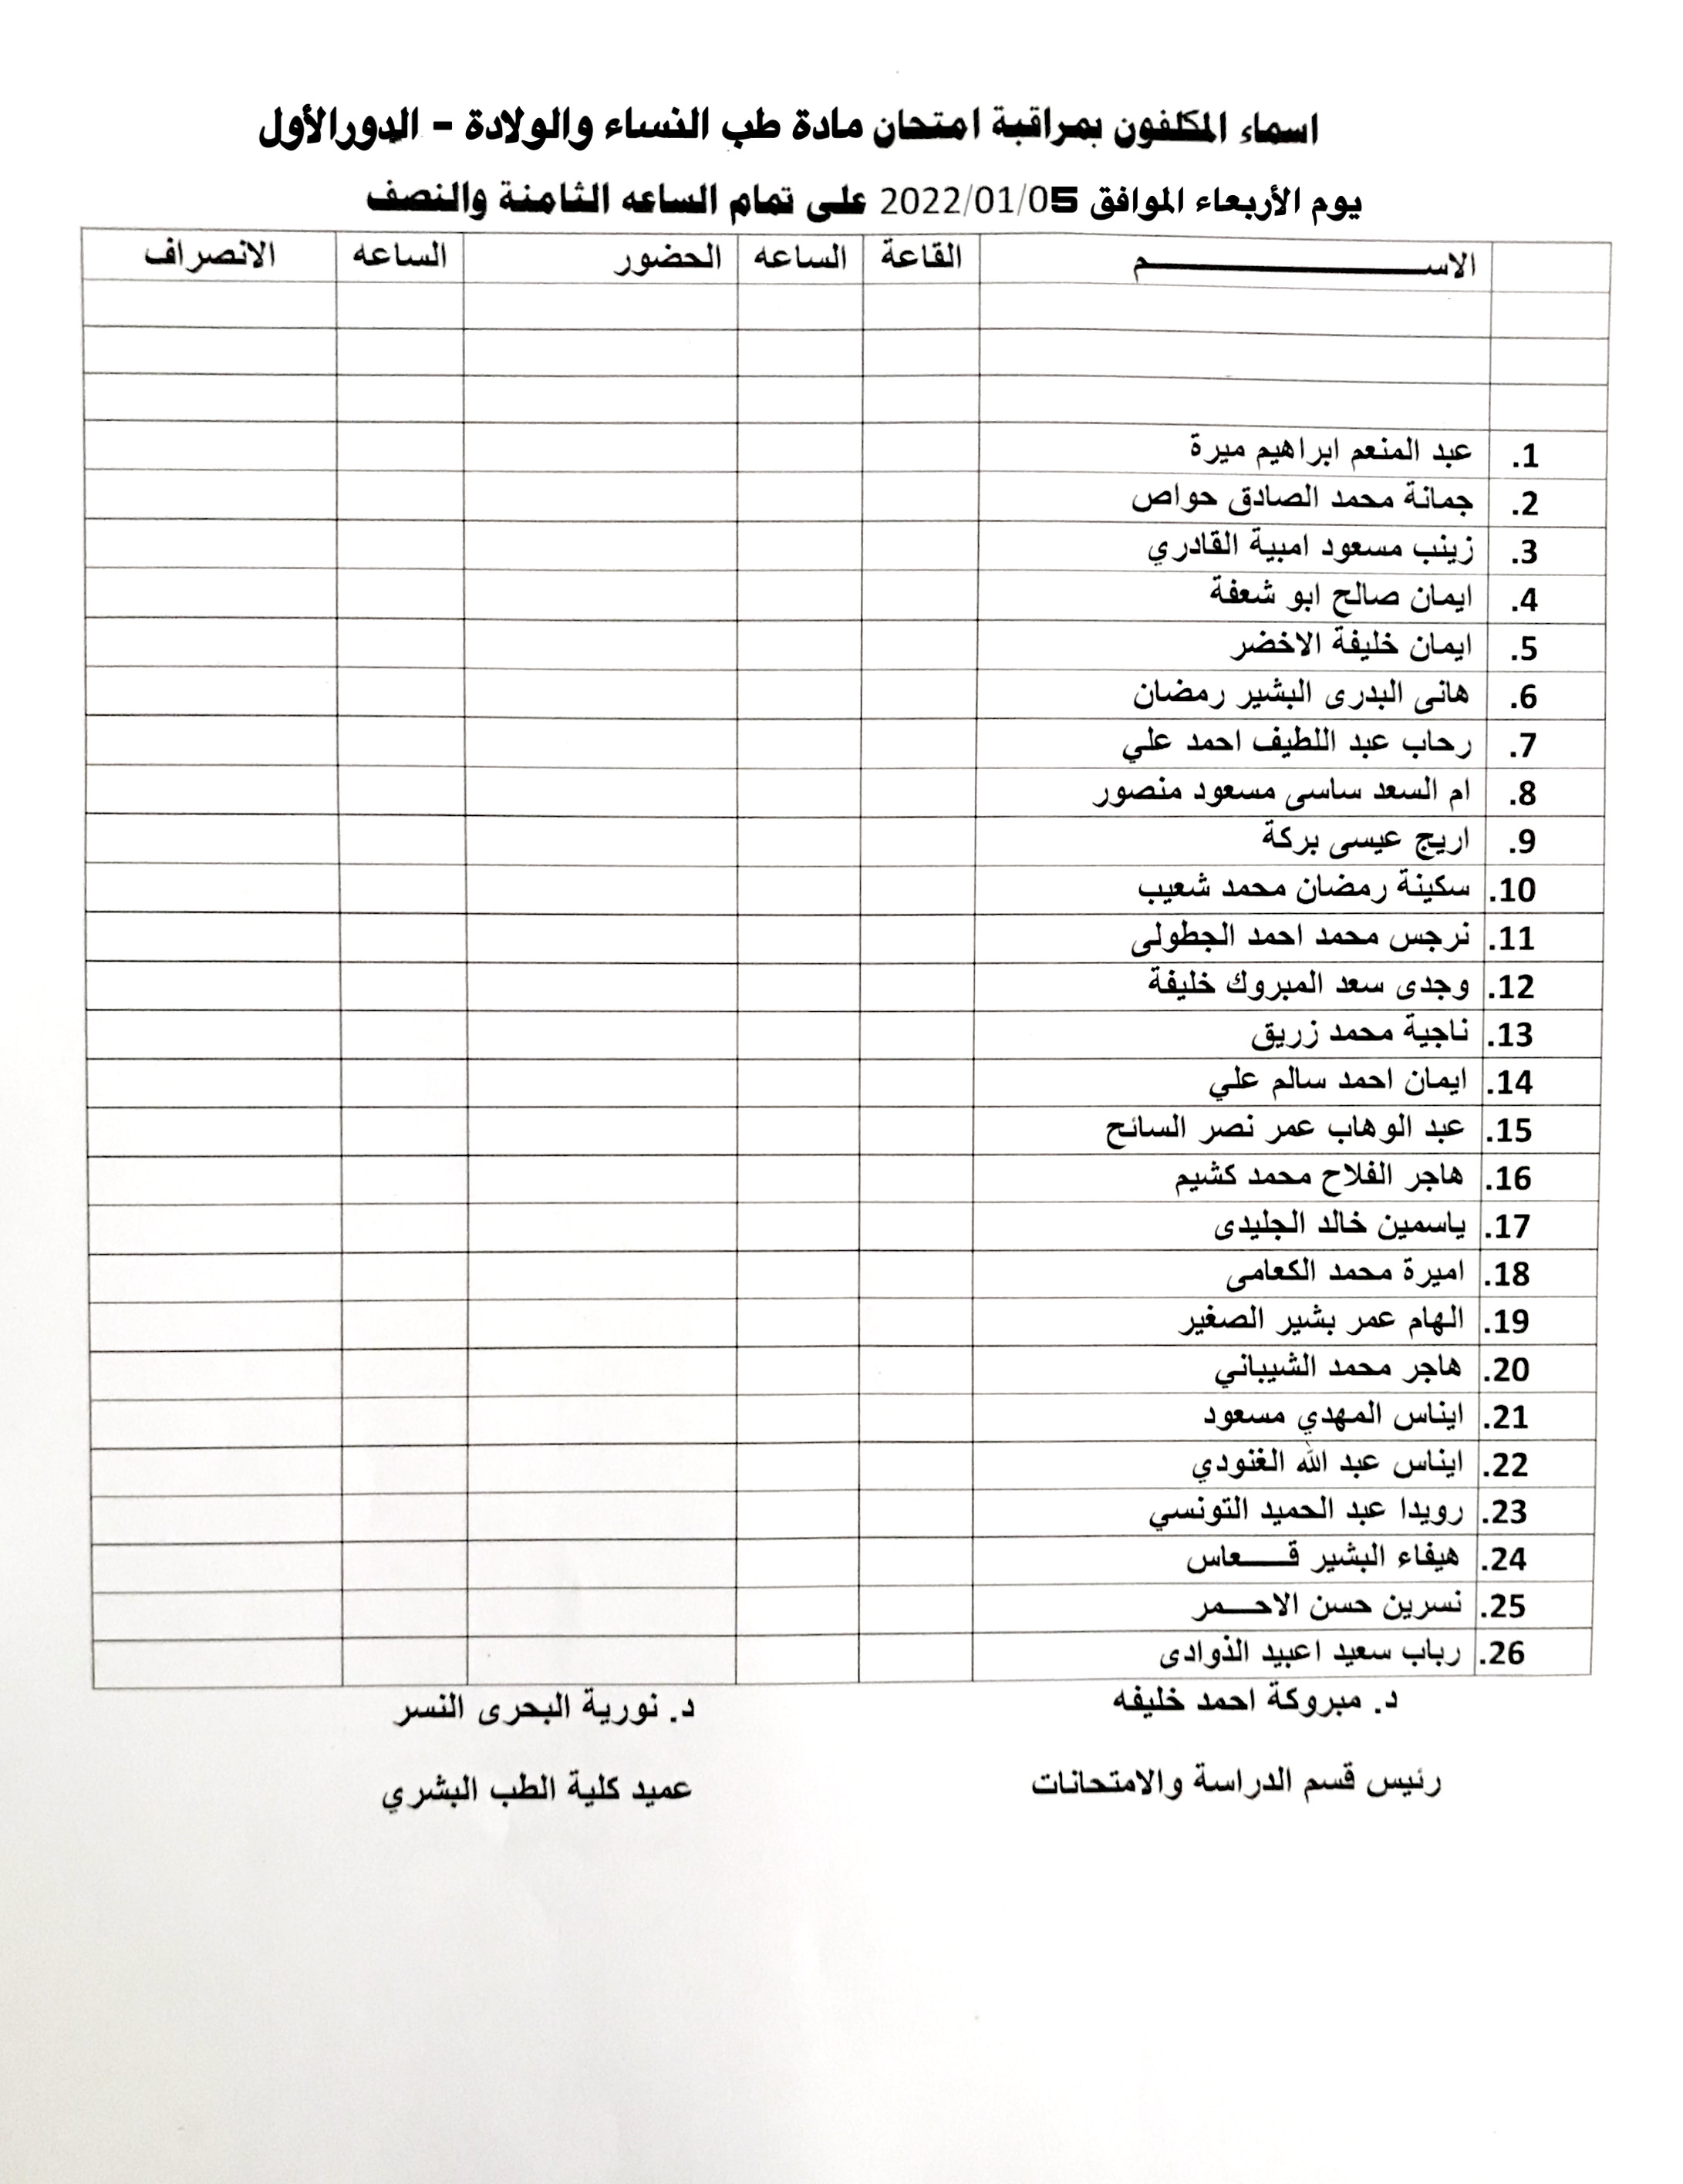 اسماء المكلفون بمراقبة امتحان مادة طب النساء والولادة - الدورالأول
يوم الأربعاء الموافق 2022/01/05 على تمام الساعه الثامنة والنصف
الاســـــــــــــم القاعة الساعه الحضور الساعه الانصراف
1. عبد المنعم ابراهيم ميرة
2. جمانة محمد الصادق حواص
3. زينب مسعود امبية القادري
4. ايمان صالح ابو شعفة
5. ايمان خليفة الاخضر
6. هانى البدرى البشير رمضان
7. رحاب عبد اللطيف احمد علي
8. ام السعد ساسى مسعود منصور
9. اريج عيسى بركة
10. سكينة رمضان محمد شعيب
11. نرجس محمد احمد الجطولى
12. وجدى سعد المبروك خليفة
13. ناجية محمد زريق
14. ايمان احمد سالم علي
15. عبد الوهاب عمر نصر السائح
16. هاجر الفلاح محمد كشيم
17. ياسمين خالد الجليدى
18. اميرة محمد الكعامى
19. الهام عمر بشير الصغير
20. هاجر محمد الشيباني
21. ايناس المهدي مسعود
22. ايناس عبد الله الغنودي
23. رويدا عبد الحميد التونسي
24. هيفاء البشير قـــــعاس
25. نسرين حسن الاحـــمر
26. رباب سعيد اعبيد الذوادى
د. مبروكة احمد خليفه د. نورية البحرى النسر
رئيس قسم الدراسة والامتحانات عميد كلية الطب البشري